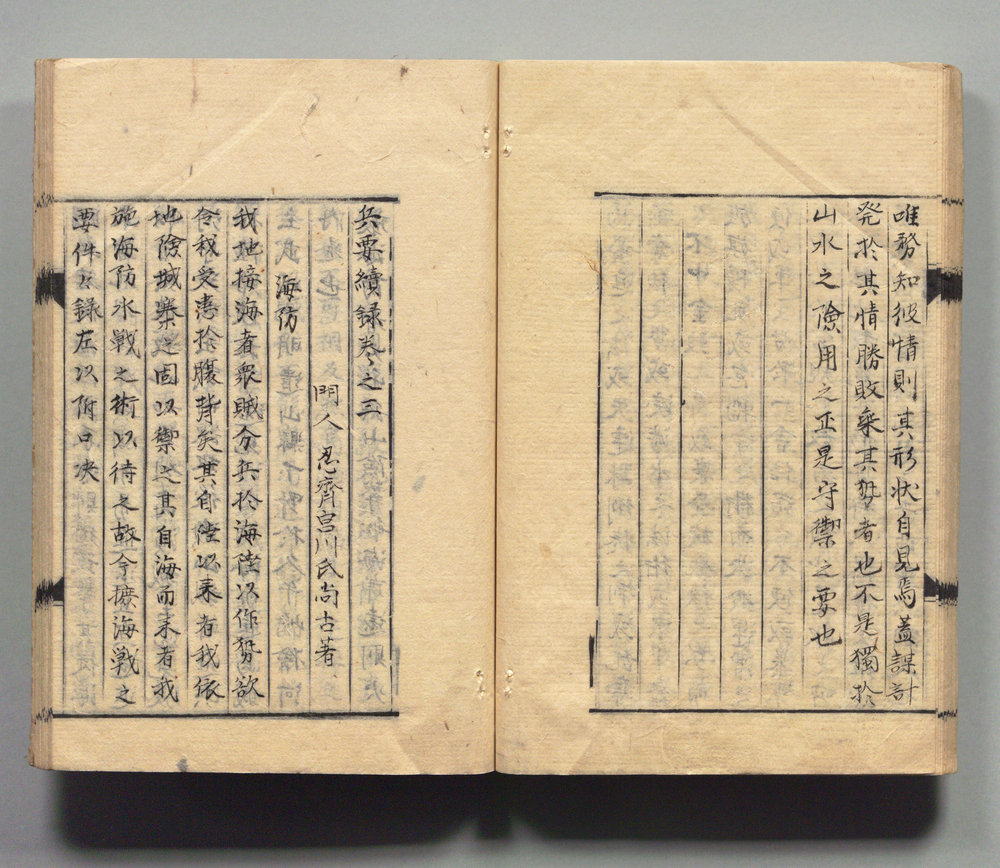 唯務知彼情則其形状自見焉蓋謀計
発於其情勝敗乗其勢者也不是獨於
山水之險用之正是守禦之要也
兵要續録巻之三
門人 忍齊宮川氏尚古著
海防
我地接海者衆賊分兵於海陸以作勢欲
令我受患於腹背矣其自陸以来者我依
地險城築逆固以禦之其自海而来者我
施海防水戦之術以待冬故今擴海戦之
要件以録左以附口决